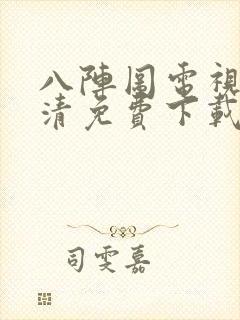 八陣圖電視
清免費下載
司雯嘉